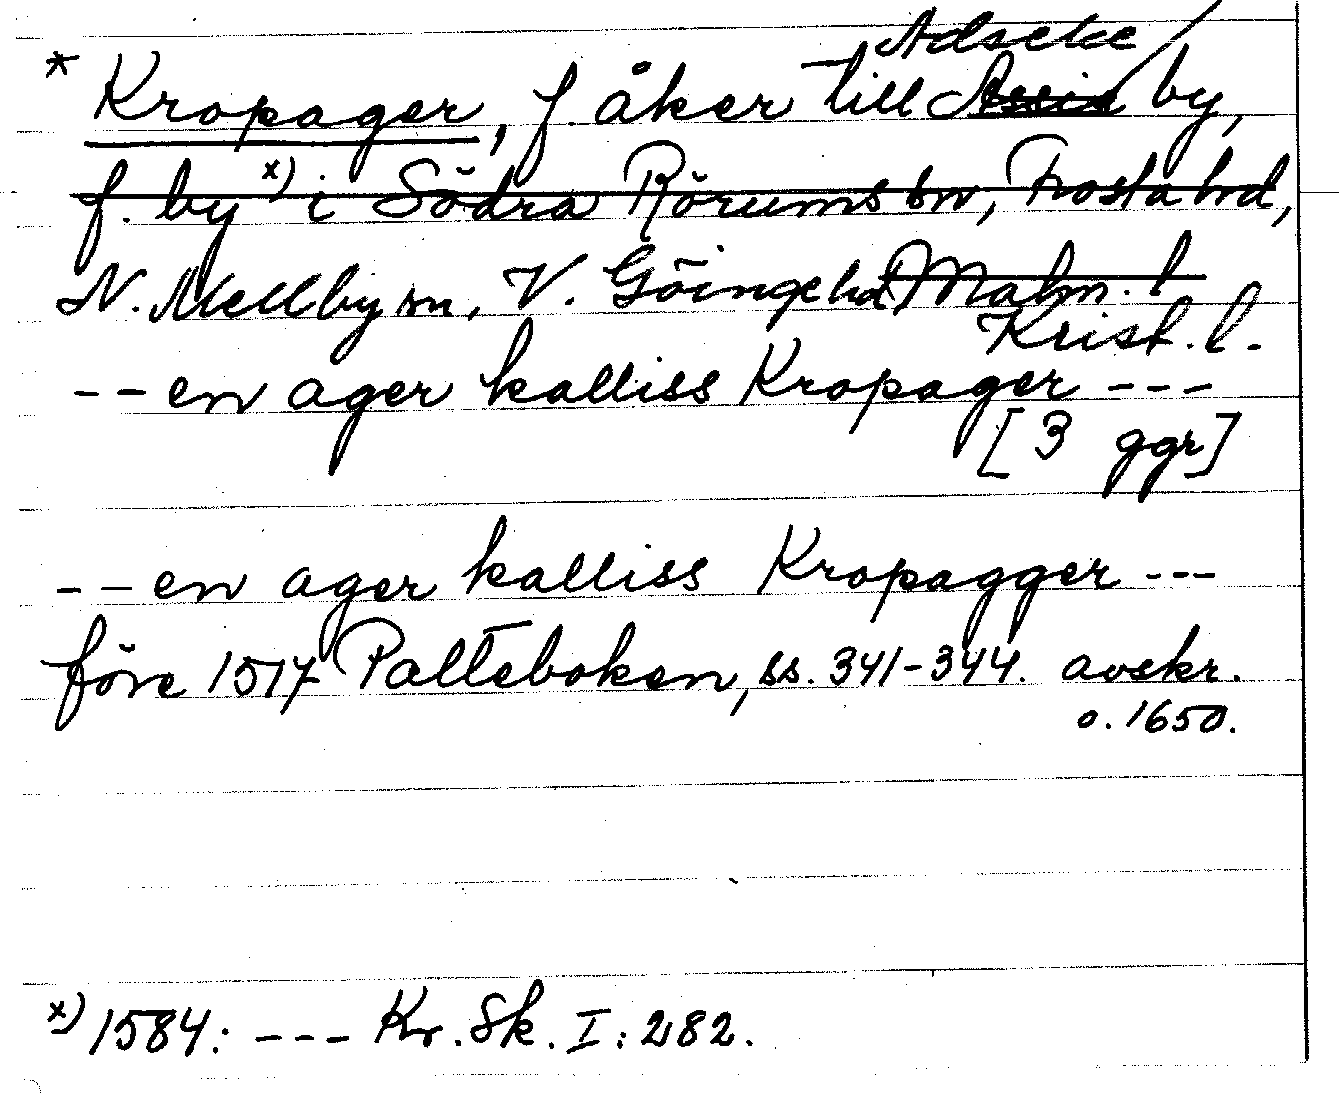 Adseke
* Kropager, f. åker till by,
f. by x) i Södra Rörums sn, Frosta hd,
N. Mellby sn, V. Göinge hd Malm. l
Krist. l.
-- en ager kalliss Kropager ---
[3 ggr]
-- en ager kalliss Kropagger ---
före 1517 Palteboken, ss. 341-344. avskr.
o. 1650.
x) 1584: --- Kr. Sk. I: 282.